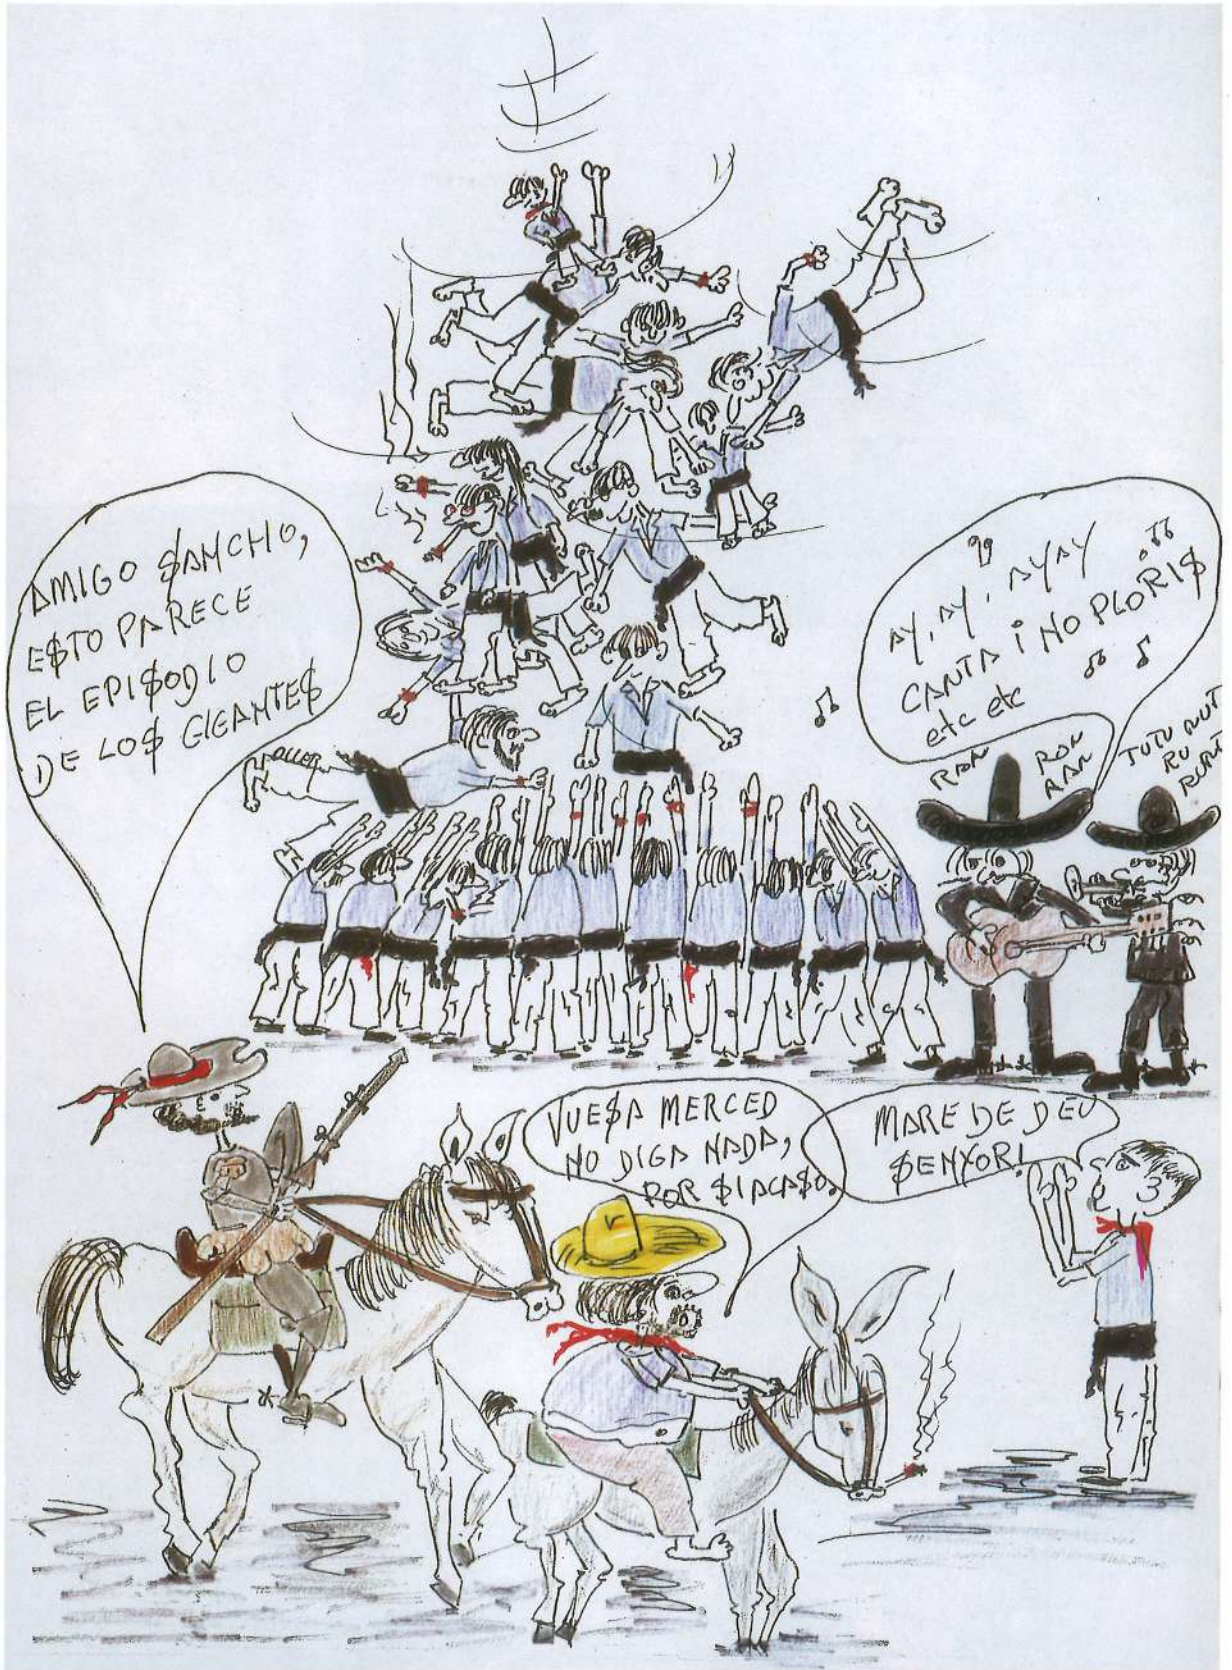 AMIGO $AMCHO,
E$TO PARECE
EL EPI$ODIO
DE LO$ GIGANTE$
AY, AY, AYAY
CANTA i NO PLORI$
etc etc
RAN
RON
RAN
TUTU RUT
RU
VUE$A MERCED
NO DIGA NADA,
POR $IACA$O.
MARE DE DEU
$ENYOR!